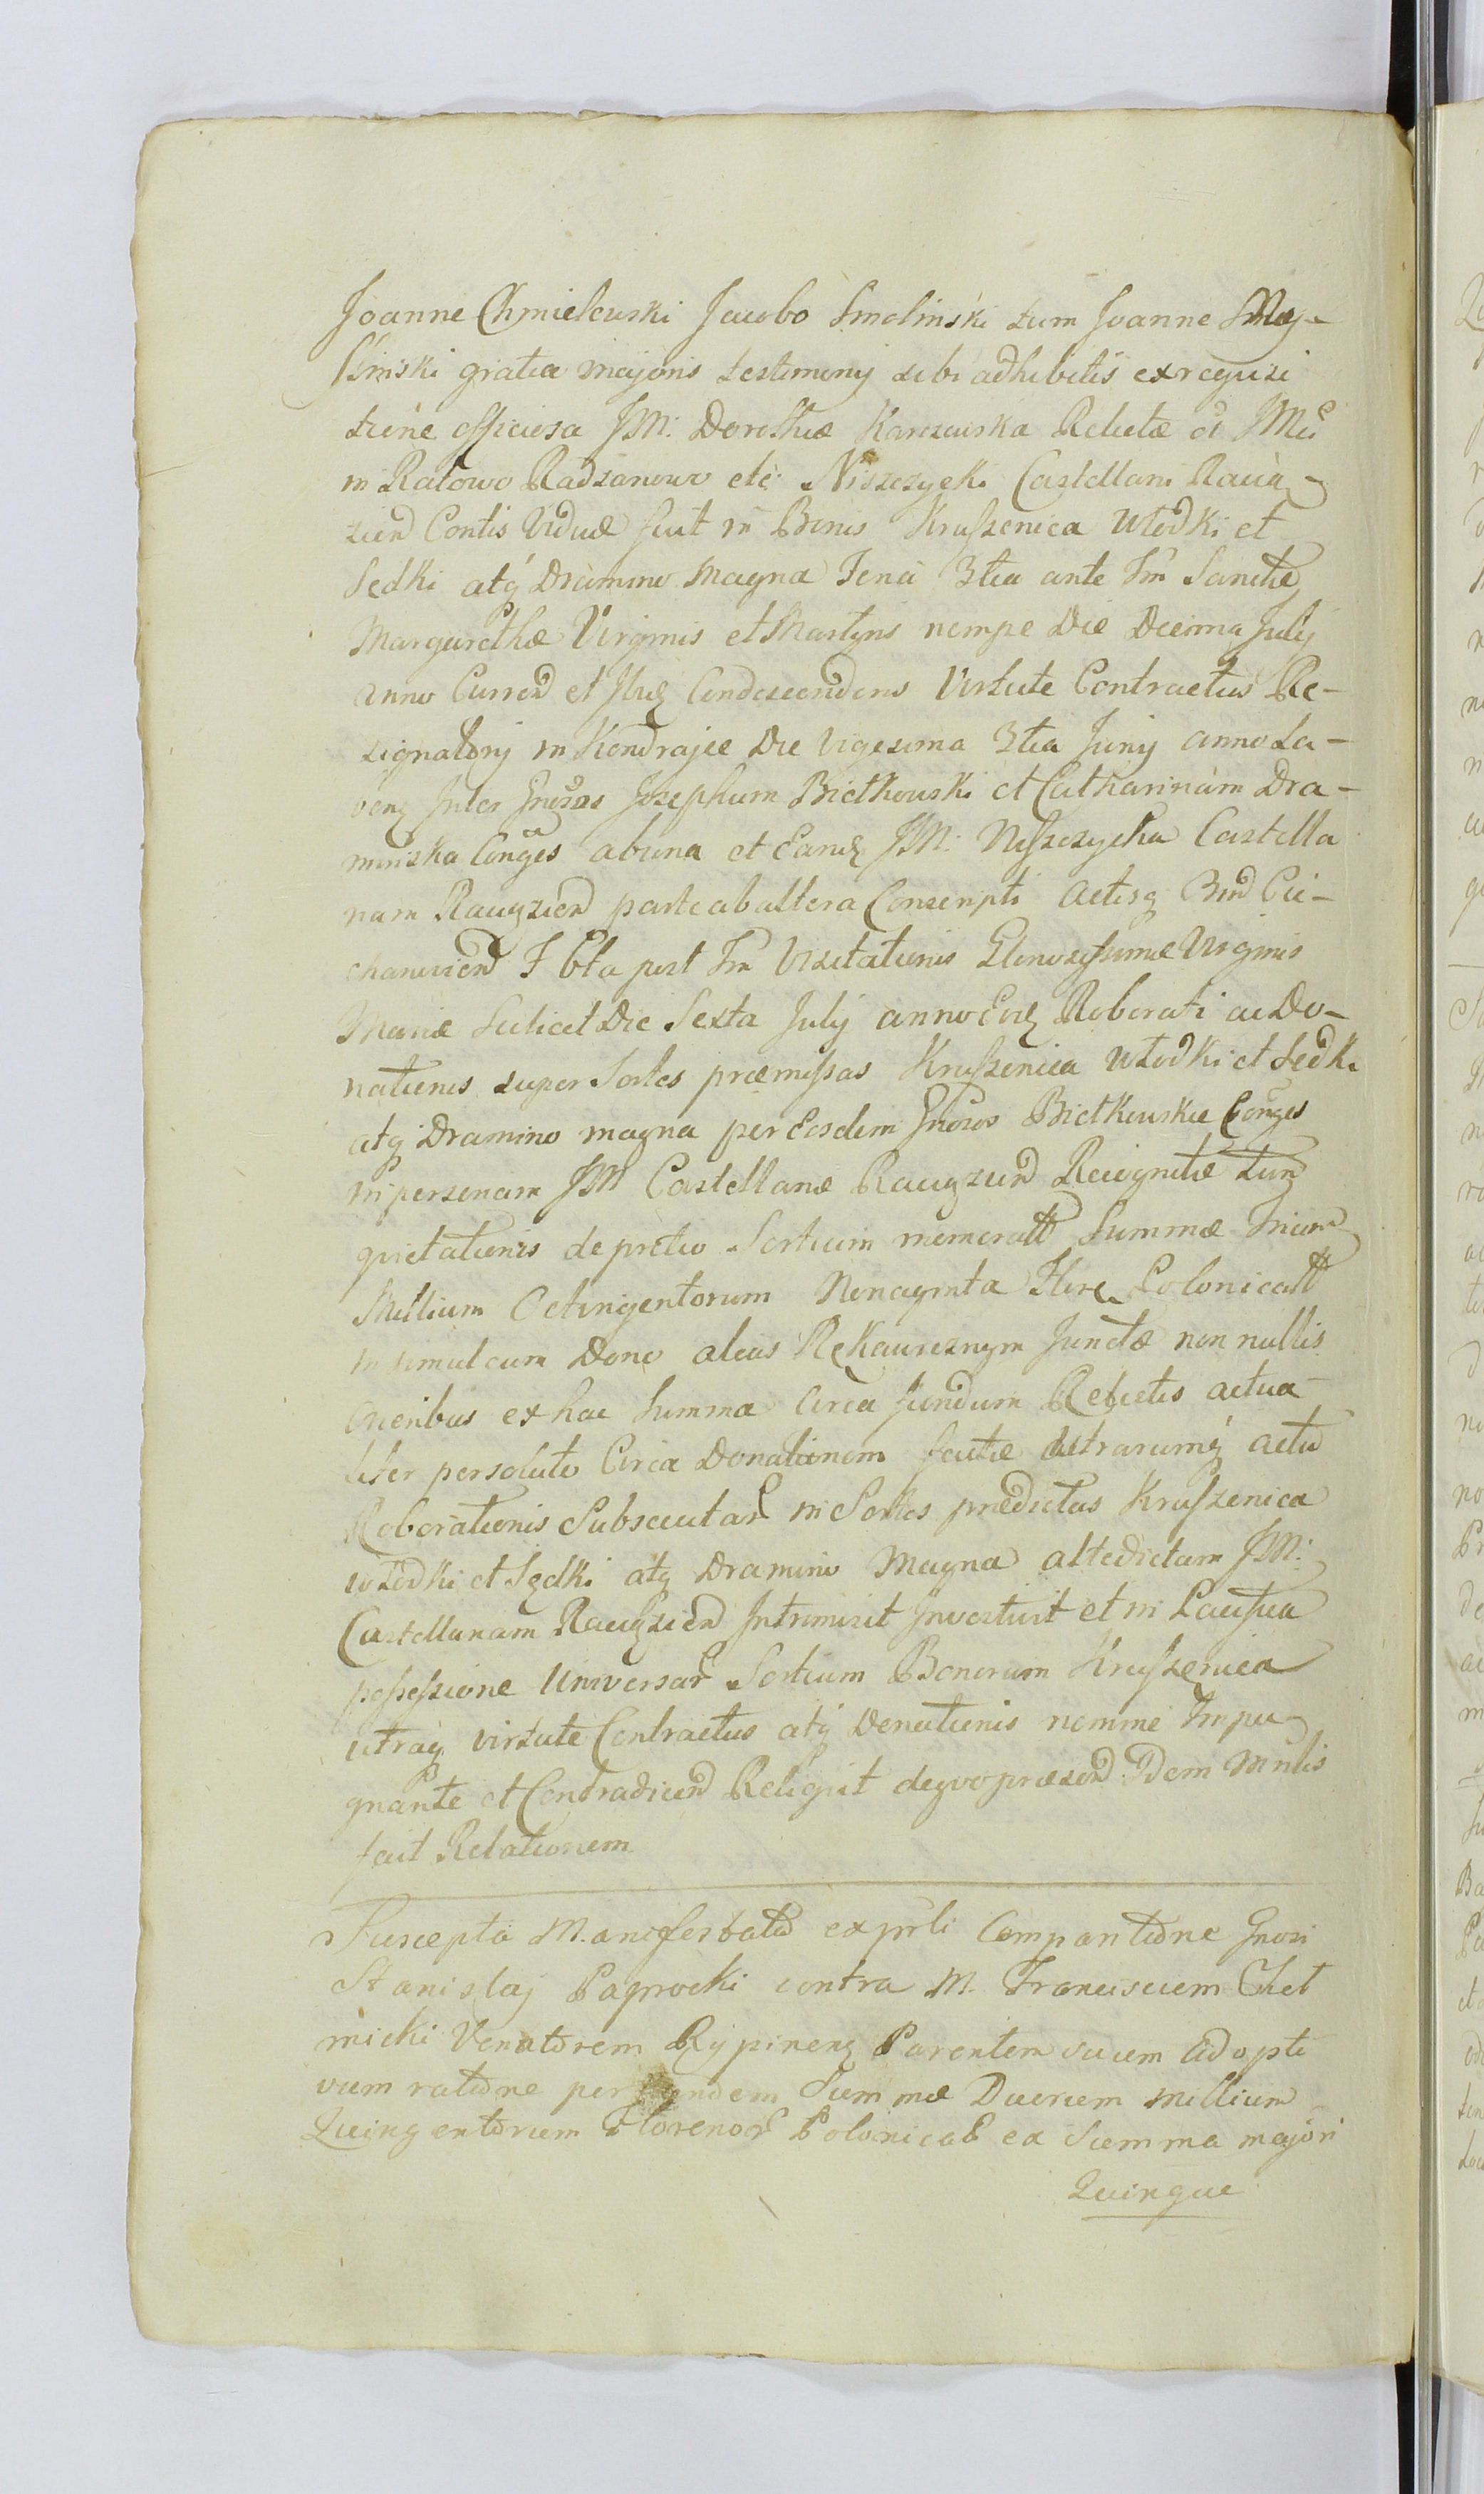 Joanne Chmielewski Jacobo Smolinski tum Joanne
gratia majoris testimonij sibi adhibitis ex requisi
tione officiosa JM: Dorothæ Karczewska Relictæ ol Mci
in Ratowo Radzanowo etc: Niszczycki Castellani Raciąz
Contis Viduæ fuit in Bonis Kruszenica Włodki et
Sędki atq Dramino Magna Feria 3tia ante Fm Sanctæ
Margarethæ Virginis et Martyris nempe Die Decima July
anno Curren et Condescendens Virtute Contractus Re-
signatorij in Kondrajec Die Vigesima 3tia Junij anno
Inter Gnosos Josephum Bietkowski et Catharinam Dra-
minska Conges ab una et Eand JM: Niszczycka Castella
nam Raciązien parte ab altera Conscripti Actisq Cie-
chanovien F 6ta post Fm Visitationis Gloriosissimæ Virginis
Mariæ Scilicet Die Sexta July anno Eod Roborati ac Do-
nationis super Sortes præmissas Kruszenica Włodki et Sędki
atq Dramino magna per Eosdem Gnosos Bietkowskie Conges
in personam JM Castellanæ Raciązien Recognitæ tum
quietationis de pretio Sortium memoratt Summæ Trium
Millium Octingentorum Nonaginta Flore Polonicatt
insimul cum Dono alias Rękawicznym Junctæ non nullis
Oneribus ex hac Summa Circa fundum Relictis actua
liter persoluto Circa Donationem factæ Utrarumq actu
Roborationis Subsecutar in Sortes prædictas Kruszenica
Włodki et Sędki atq Dramino Magna altedictam JM:
Castellanam Raciązien Intromisit Investivit et in Pacifica
possessione Universar Sortium Bonorum Kruszenica
utraq virtute Contractus atq Donationis nemine Impu-
gnante et Contradicen Reliquit de quo præsen Idem Mnlis
fecit Relationem
Suscepta Manifestatio ex prli Comparitione Gnosi
Stanislaj Paprocki contra M. Franciscum Cheł
micki Venatorem Rypinens Parentem suum Adopti
vum ratione Summæ Duorum Millium
Quingentorum Florenor Polonical ex Summa majori
Quinque